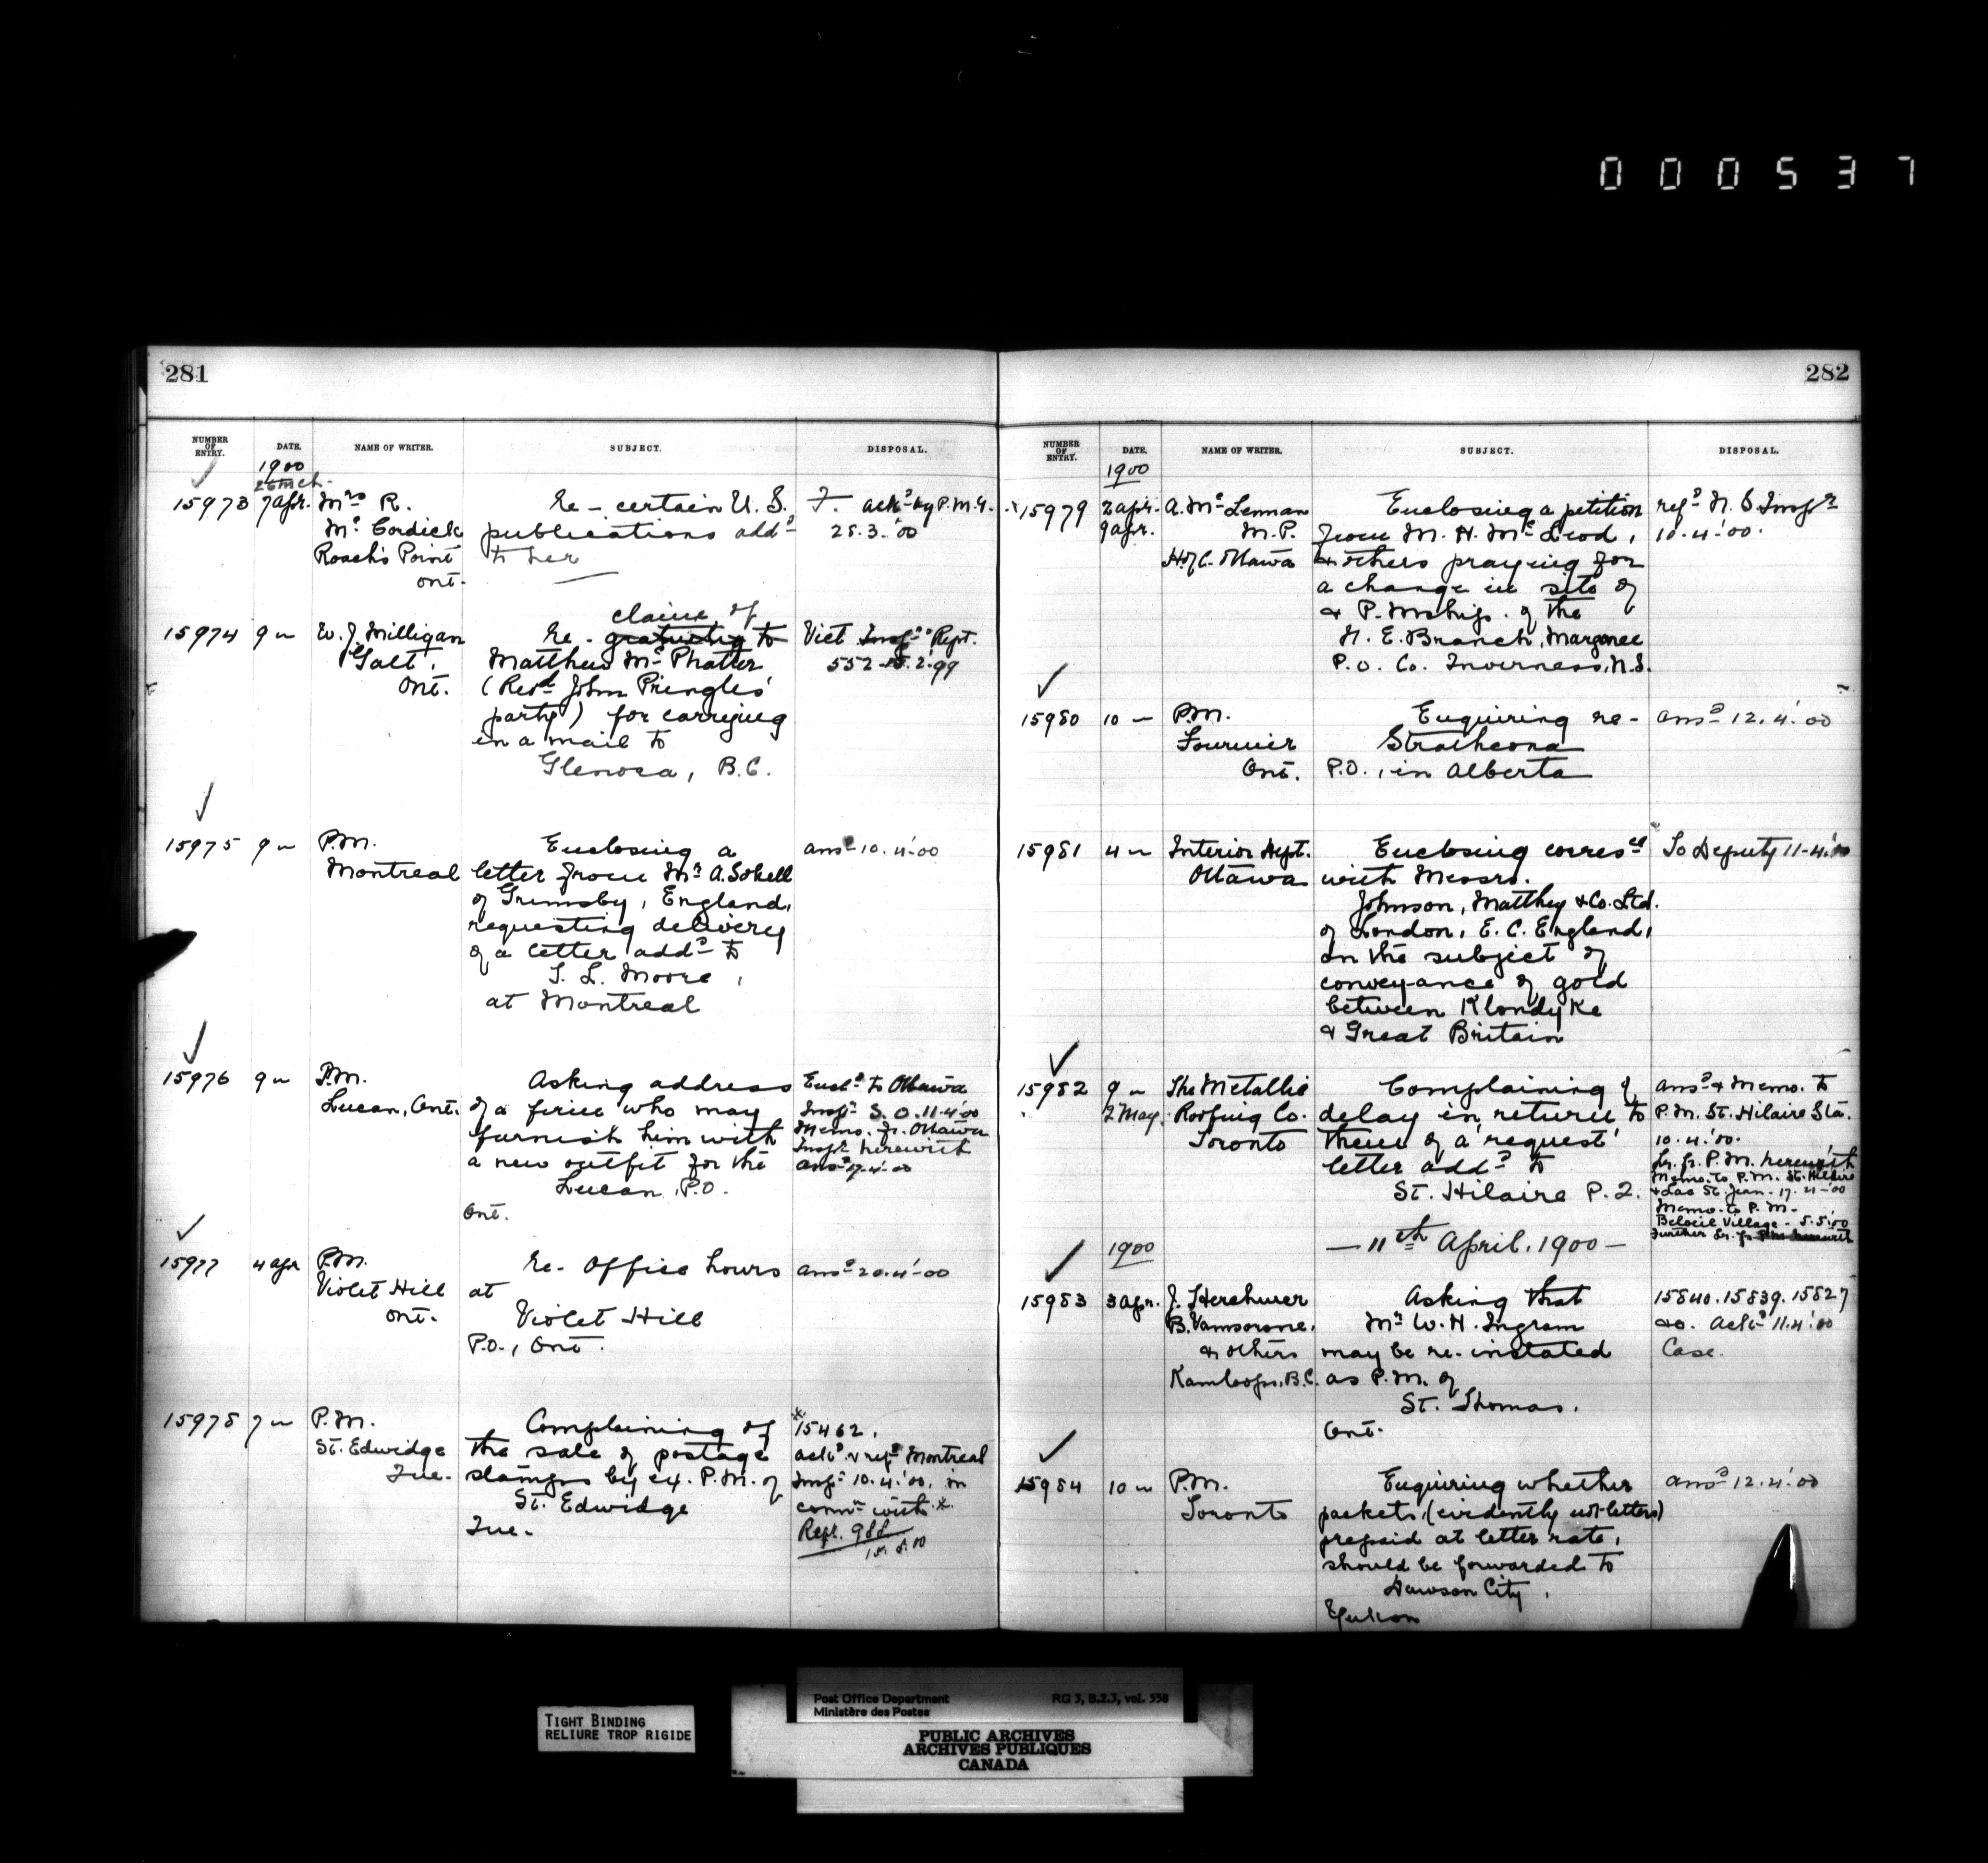 000537
281
NUMBER OF ENTRY. DATE. NAME OF WRITER. SUBJECT. DISPOSAL.
1900
26 mch.
15973 7 apr. Mrs R. Re - certain U. S. F. ackd by P.M.G.
McCordick publications addd 28.3.'00
Roach's Point to her
Ont.
claim of
15974 9 " W. J. Milligan Re - gratuity to Vict. Insp's Rept.
Galt, Matthew McPhatter 552 - 15.2.'99
Ont. (Revd John Pringle's
party) for carrying
in a mail to
Glenora, B.C.
15975 9 " P.M. Enclosing a ansd 10.4.'00
Montreal letter from Mr A. Sokell
of Grimsby, England,
requesting delivery
of a letter addd to
L. Moore,
at Montreal
15976 9 " P.M. Asking address Encld to Ottawa
Lucan, Ont. of a firm who may Inspr S.O. 11.4.'00
furnish him with Memo. fr. Ottawa
a new outfit for the Inspr herewith
Lucan P.O. ansd 17.4.'00
Ont.
15977 4 apr P.M. Re - Office hours ansd 20.4.'00
Violet Hill at
Ont. Violet Hill
P.O., Ont.
15978 7 " P.M. Complaining of *15462.
St. Edwidge the sale of postage ackd & refd Montreal
Que. stamps by ex. P.M. of Inspr 10.4.'00, in
St. Edwidge connn with *
Que. Rept. 988
15.5.00
282
NUMBER OF ENTRY. DATE. NAME OF WRITER. SUBJECT. DISPOSAL.
1900
15979 2 apr. A. McLennan Enclosing a petition refd N. S. Inspr
9 apr. M.P. from M. H. McLeod, 10.4.'00.
H. of C. Ottawa & others praying for
a change in site of
& P. Mrship. of the
N. E. Branch, Margaree
P.O. Co. Inverness, N.S.
15980 10 " P.M. Enquiring re - ansd 12.4.'00
Fournier Strathcona
Ont. P.O., in Alberta
15981 4 " Interior Dept. Enclosing corresce To Deputy 11-4.'00
Ottawa with Messrs.
Johnson, Matthey & Co. Ltd.
of London, E.C. England,
on the subject of
conveyance of gold
between Klondyke
& Great Britain
15982 9 " The Metallic Complaining of ansd & Memo. to
2 May. Roofing Co. delay in return to P.M. St. Hilaire Sta.
Toronto them of a 'request' 10.4.'00.
letter addd to Lr. fr. P.M. herewith
St. Hilaire P.Q. Memo. to P.M. St. Hilaire
& Lac St. Jean - 17.4-'00
Memo. to P.M.
Beloeil Village - 5.5.'00
Further Lr. fr. P.M. herewith
1900 — 11th April, 1900 —
15983 3 apr. J. Asking that 15840.15839.15827
B. Mr W. H. Ingram &c. ackd 11.4.'00
& others may be re-instated Case.
Kamloops, B.C. as P.M. of
St. Thomas.
Ont.
15984 10 " P.M. Enquiring whether ansd 12.4.'00
Toronto packets, (evidently not letters)
prepaid at letter rate,
should be forwarded to
Dawson City,
Yukon
TIGHT BINDING
RELIURE TROP RIGIDE
Post Office Department RG 3, B.2.3, vol. 558
Ministère des Postes
PUBLIC ARCHIVES
ARCHIVES PUBLIQUES
CANADA